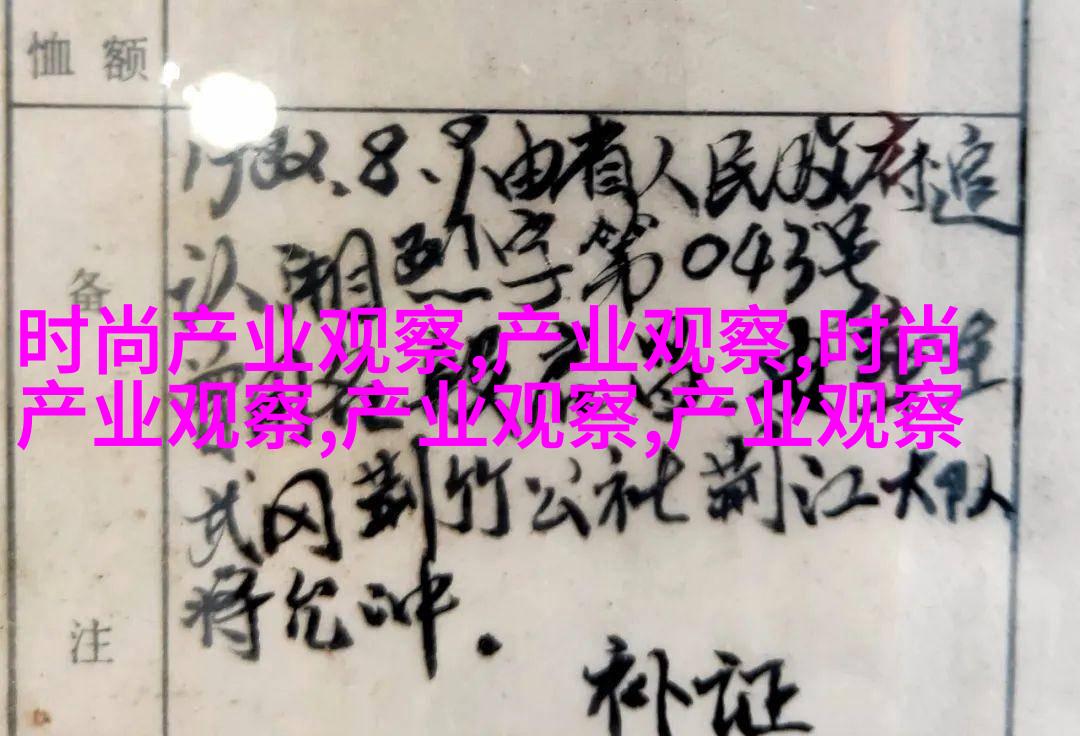 恤额
1982.8.9由省人民政府追
认湘烈字第043号
备
时尚产业观察,产业观察,时尚
产业观察,产业观察,产业观察
武冈荆竹公社荆江大队
蒋允冲.
注
补证